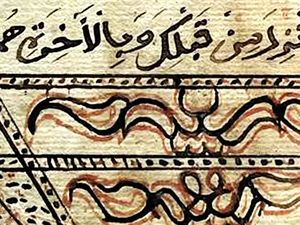 من قبلك وبالآخرة هم